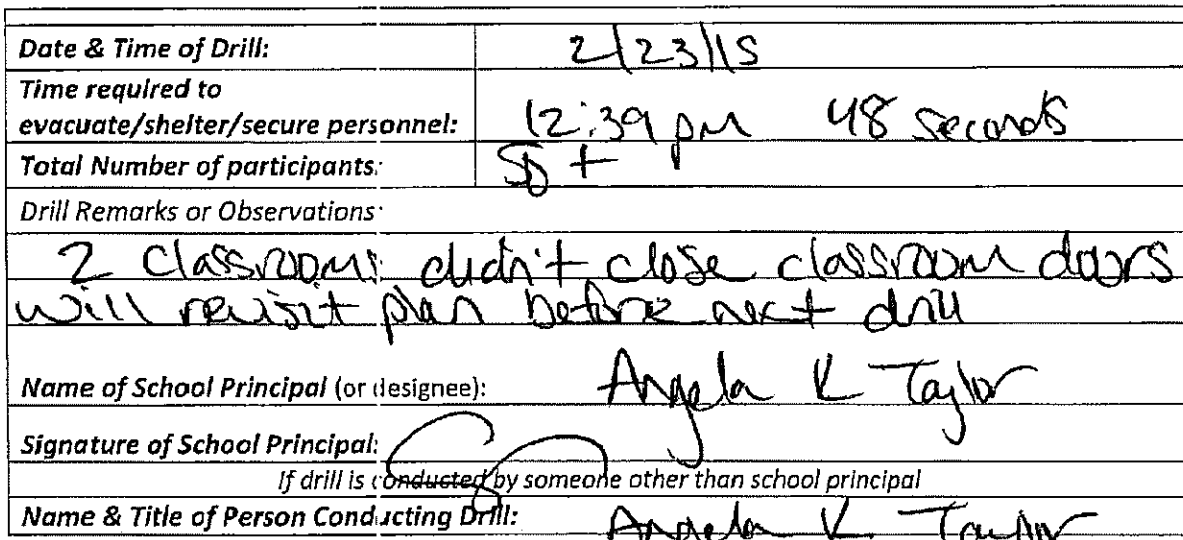 Date & Time of Drill: 2/23/15
Time required to
evacuate/shelter/secure personnel: 12:39 pm 48 seconds
Total Number of participants: +
Drill Remarks or Observations:
2 classrooms didn't close classroom doors
will revisit plan before next drill
Name of School Principal (or designee): Angela K Taylor
Signature of School Principal:
If drill is conducted by someone other than school principal
Name & Title of Person Conducting Drill: Angela K Taylor